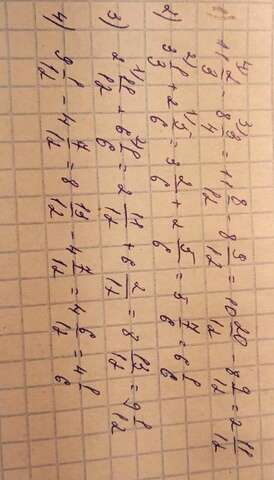 1) 11 ⁴⁾2/3 - 8 ³⁾3/4 = 11 8/12 - 8 9/12 = 10 20/12 - 8 9/12 = 2 11/12
2) 3 ²⁾1/3 + 2 ¹⁾5/6 = 3 2/6 + 2 5/6 = 5 7/6 = 6 1/6
3) 2 ¹⁾11/12 + 6 ²⁾1/6 = 2 11/12 + 6 2/12 = 8 13/12 = 9 1/12
4) 9 1/12 - 4 7/12 = 8 13/12 - 4 7/12 = 4 6/12 = 4 1/6